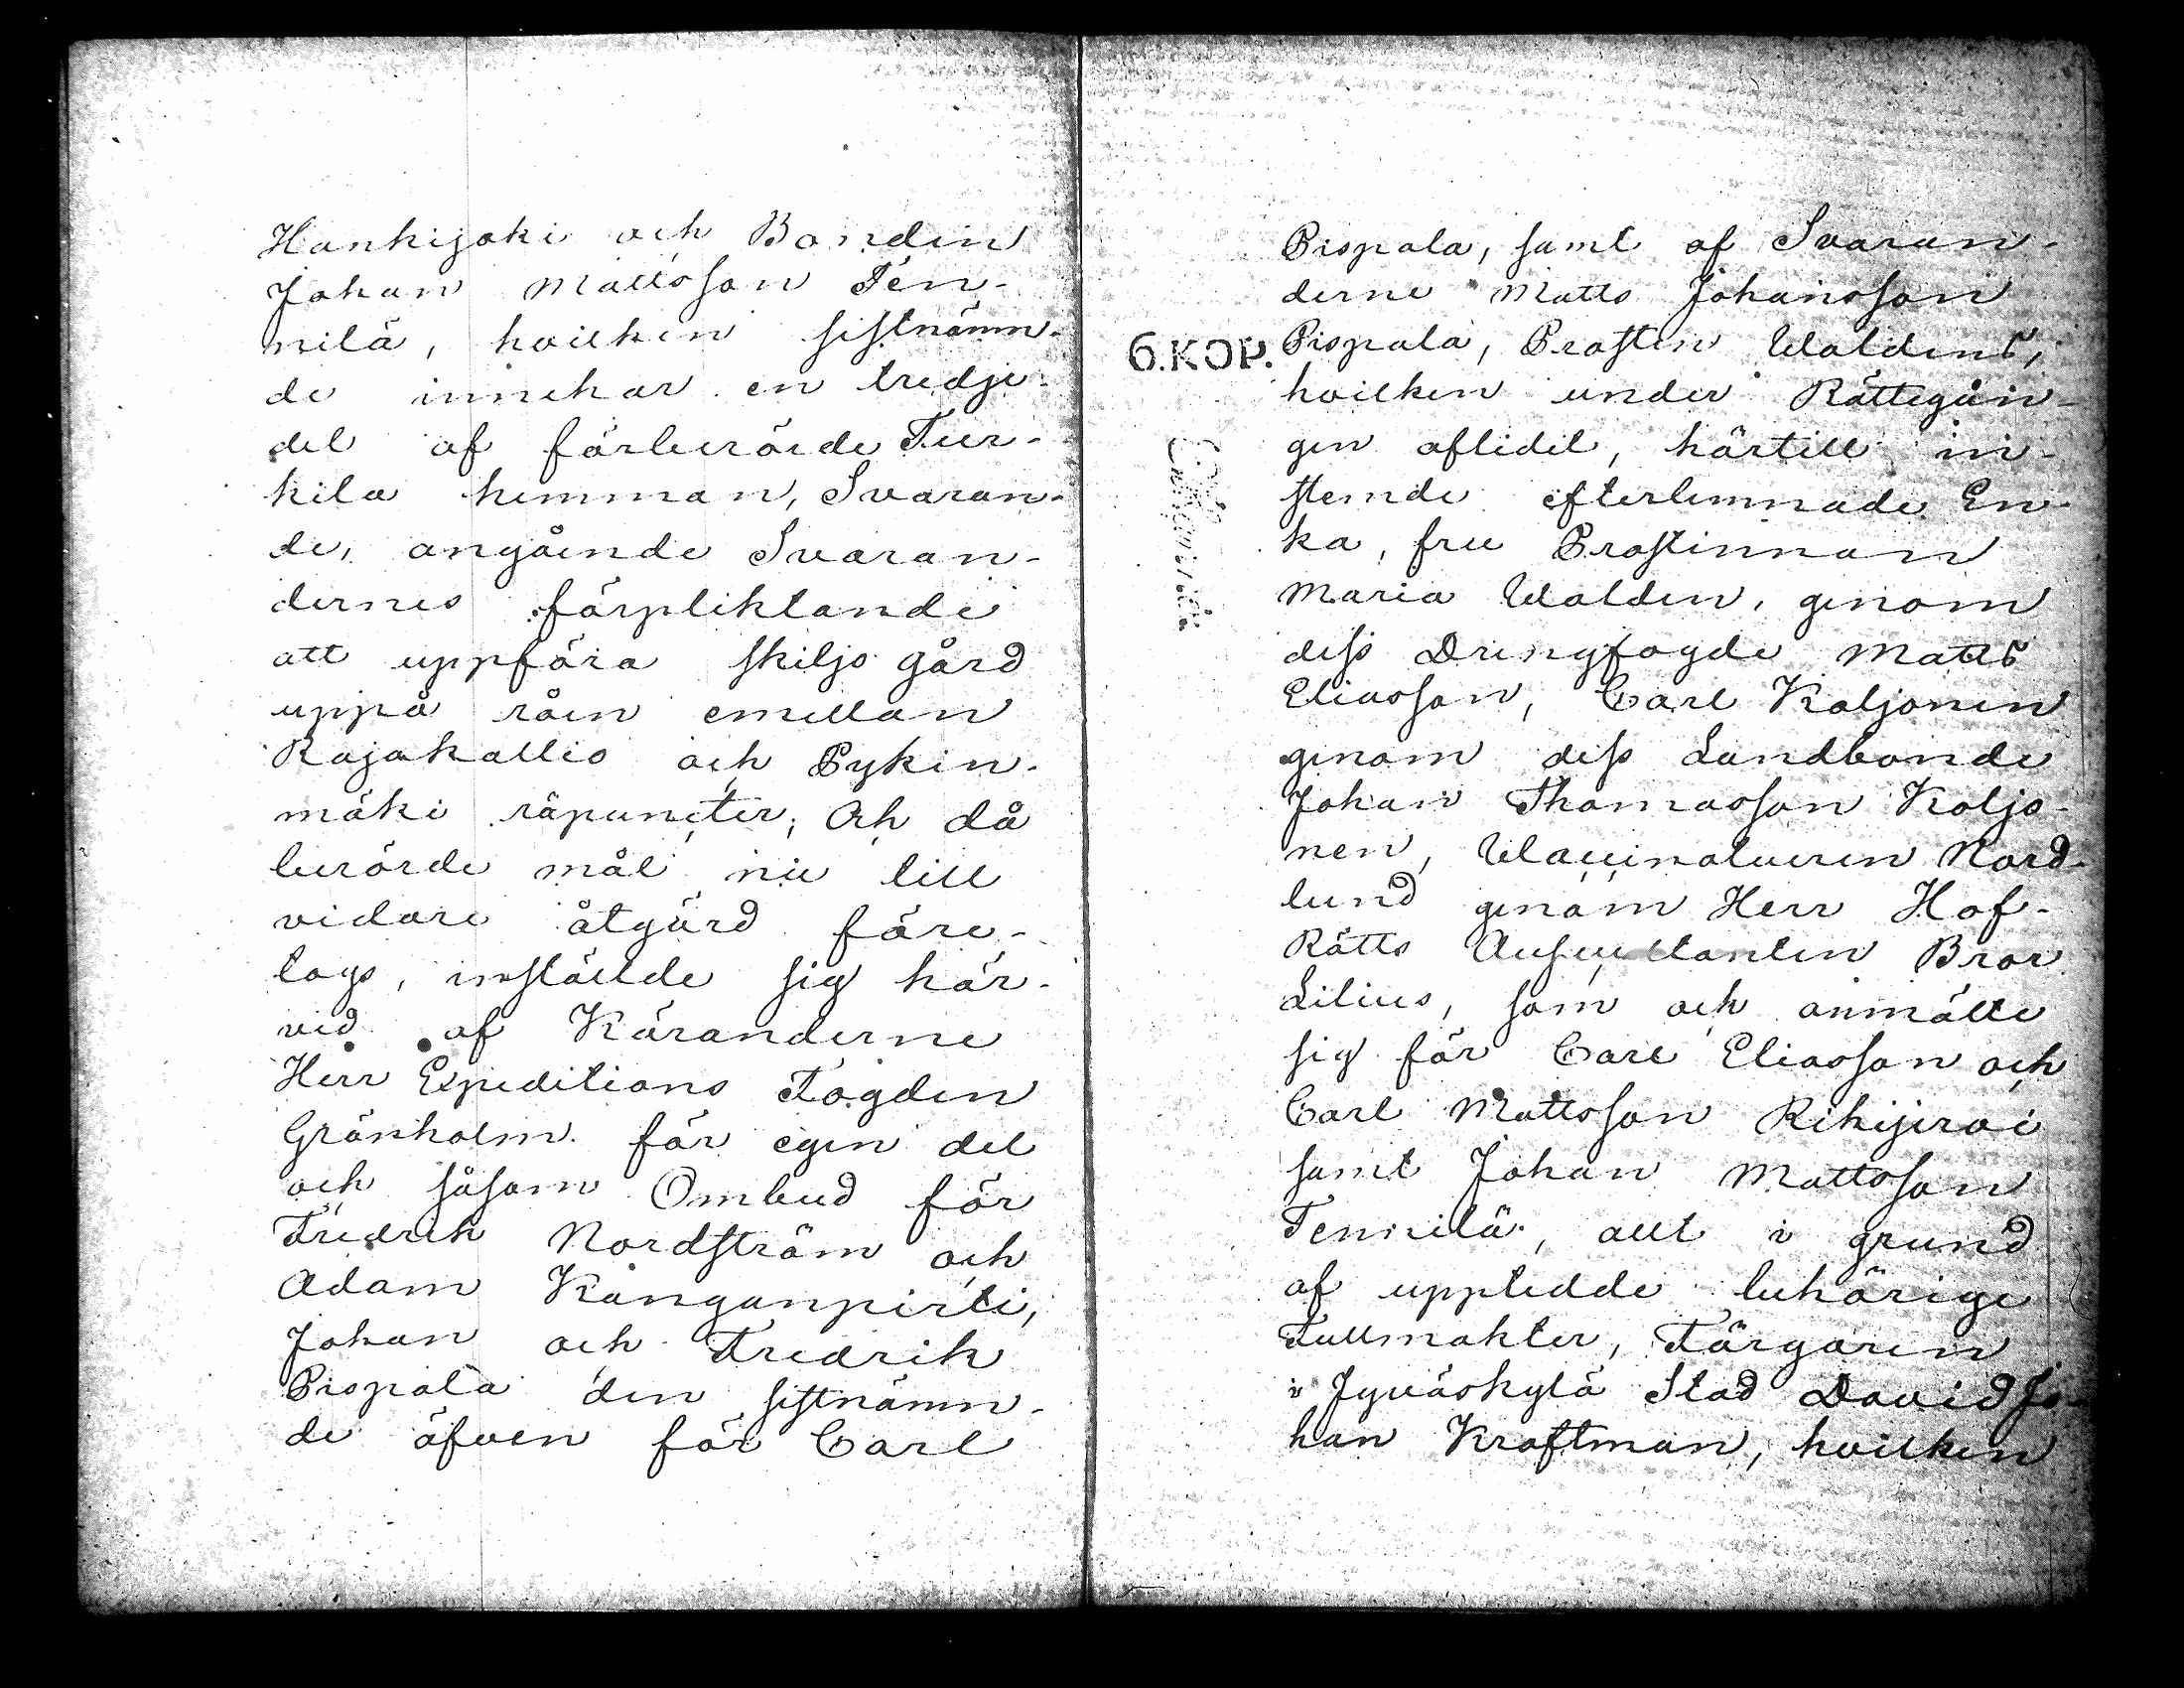 Hankijoki och Bonden
Johan Mattsson Ten-
nilä, hvilken sistnämn-
de innehar en tredje-
del af förberörde Tur-
kila hemman, Svaran-
de, angående Svaran-
dernes förpliktande
att uppföra skiljo gård
uppå råen emellan
Rajakallio och Pykin-
mäki råpuncter; Och då
berörde mål nu till
vidare åtgärd före-
togs, instälde sig här-
vid af Käranderne
Herr Expeditions Fogden
Grönholm för egen del
och såsom Ombud för
Fredrik Nordström och
Adam Kanganpirti,
Johan och Fredrik
Pispala den sistnämn-
de äfven för Carl
Pispala, samt af Svaran-
derne Matts Johansson
6.KOP.
Pispala, Prosten Waldens,
hvilken under Rättegån-
gen aflidit, härtill in-
stemde efterlemnade En-
ka, fru Prostinnan
Maria Walden, genom
dess Drengfogde Matts
Eliasson, Carl Koljonen
genom dess Landbonde
Johan Thomasson Koljo-
nen, Vaccinateuren Nord-
lund genom Herr Hof-
Rätts Auscultanten Bror
Lilius, som och anmälte
sig för Carl Eliasson och
Carl Mattsson Rihijervi
samt Johan Mattsson
Tennilä, allt i grund
af uppledde behörige
Fullmakter, Färgaren
i Jyväskylä Stad David Jo-
han Kraftman, hvilken